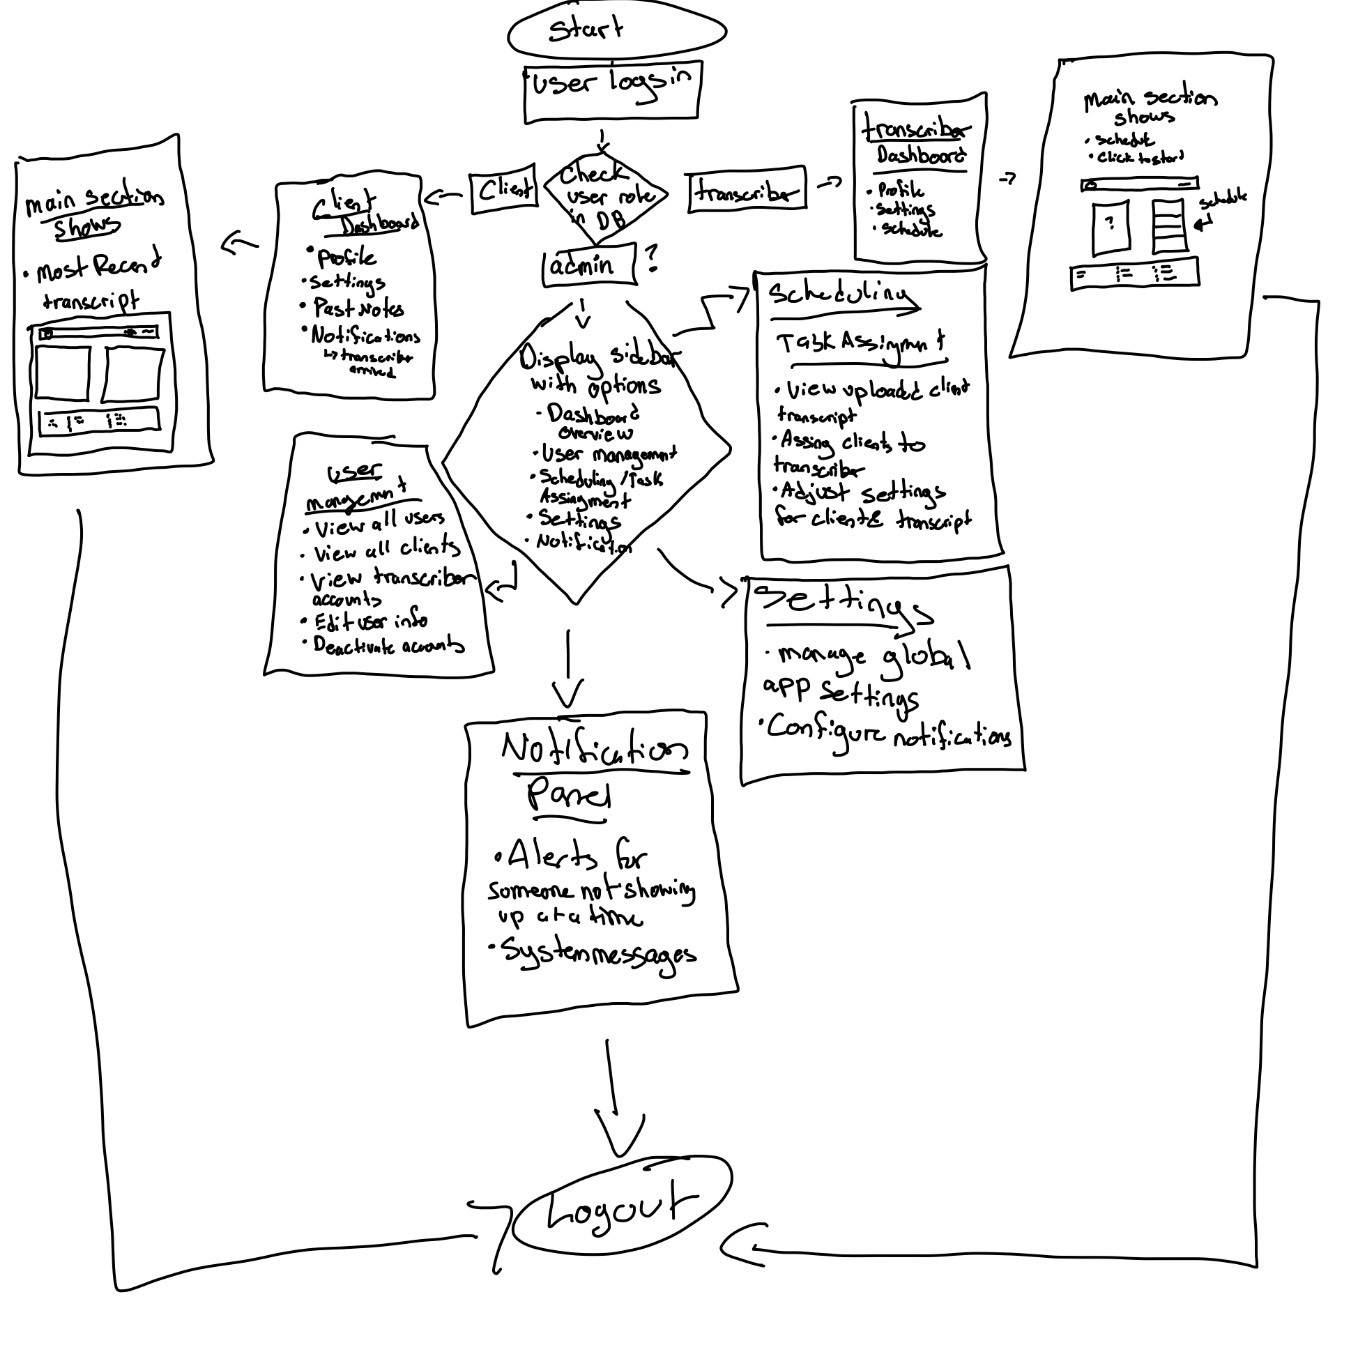 Start
User logs in
Check
user role
in DB
Client
transcriber
admin ?
Client
Dashboard
• Profile
• Settings
• Past Notes
• Notifications
↳ transcriber
arrived
main section
shows
• Most Recent
transcript
transcriber
Dashboard
• Profile
• Settings
• schedule
main section
shows
• schedule
• Click to start
?
schedule
Display sidebar
with options
• Dashboard
overview
• User management
• Scheduling / Task
Assingment
• Settings
• Notification
Scheduling
Task Assigment
• View uploaded client
transcript
• Assing clients to
transcriber
• Adjust settings
for client & transcript
User
mangement
• View all users
• View all clients
• View transcriber
accounts
• Edit user info
• Deactivate accounts
Settings
• manage global
app settings
• Configure notifications
Notification
Panel
• Alerts for
someone not showing
up at a time
• System messages
Logout